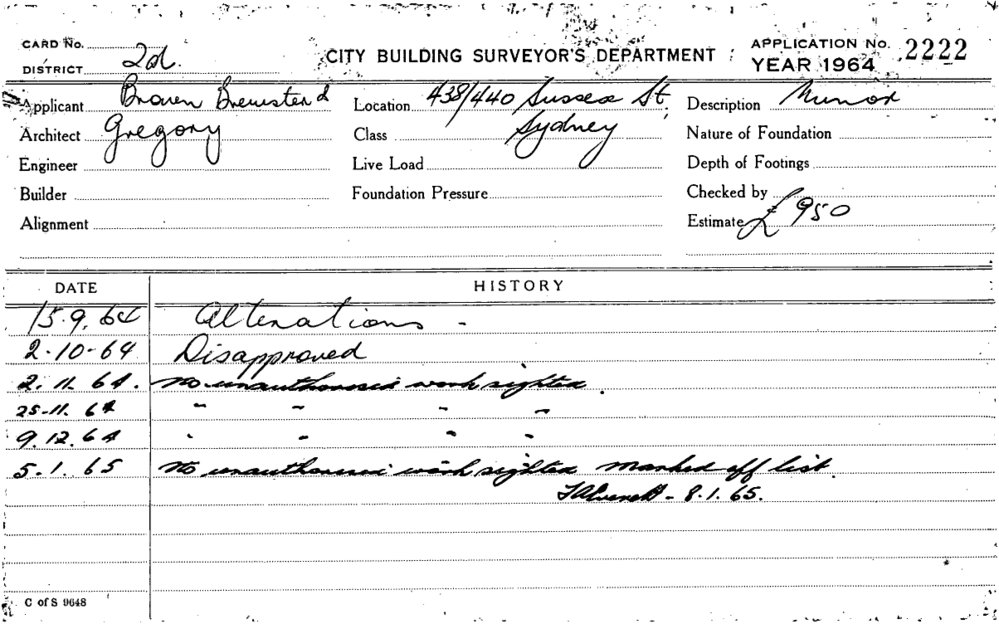 CARD No.
DISTRICT 2d.
CITY BUILDING SURVEYOR'S DEPARTMENT
APPLICATION No. 2222
YEAR 1964
Applicant Brewster &
Architect Gregory
Engineer
Builder
Alignment
Location 438/440 Sussex St,
Class Sydney
Live Load
Foundation Pressure
Description Minor
Nature of Foundation
Depth of Footings
Checked by
Estimate £950
DATE HISTORY
15.9.64 Alterations -
2-10-64 Disapproved
2.11.64. No unauthorised work sighted.
25-11.64 " " " "
9.12.64 " " " "
5.1.65 No unauthorised work sighted marked off list
- 8.1.65.
C of S 9648